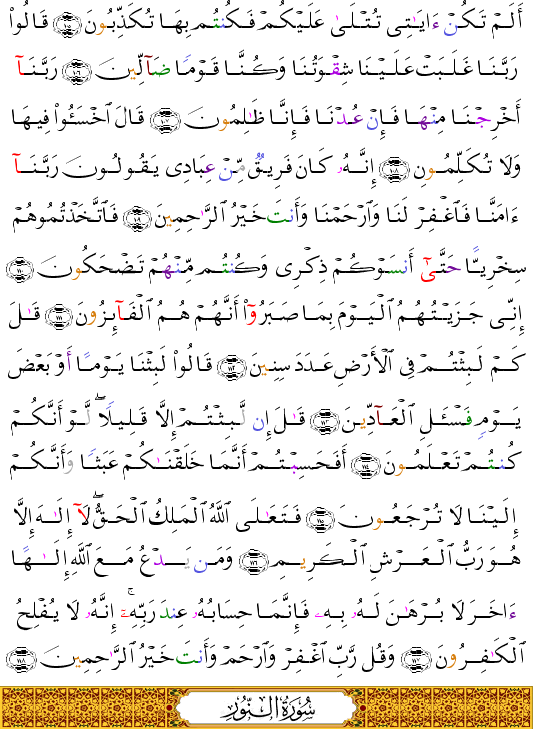 أَلَمْ تَكُنْ ءَايَٰتِى تُتْلَىٰ عَلَيْكُمْ فَكُنتُم بِهَا تُكَذِّبُونَ ﴿١٠٥﴾ قَالُوا۟
رَبَّنَا غَلَبَتْ عَلَيْنَا شِقْوَتُنَا وَكُنَّا قَوْمًا ضَآلِّينَ ﴿١٠٦﴾ رَبَّنَآ
أَخْرِجْنَا مِنْهَا فَإِنْ عُدْنَا فَإِنَّا ظَٰلِمُونَ ﴿١٠٧﴾ قَالَ ٱخْسَـُٔوا۟ فِيهَا
وَلَا تُكَلِّمُونِ ﴿١٠٨﴾ إِنَّهُۥ كَانَ فَرِيقٌ مِّنْ عِبَادِى يَقُولُونَ رَبَّنَآ
ءَامَنَّا فَٱغْفِرْ لَنَا وَٱرْحَمْنَا وَأَنتَ خَيْرُ ٱلرَّٰحِمِينَ ﴿١٠٩﴾ فَٱتَّخَذْتُمُوهُمْ
سِخْرِيًّا حَتَّىٰٓ أَنسَوْكُمْ ذِكْرِى وَكُنتُم مِّنْهُمْ تَضْحَكُونَ ﴿١١٠﴾
إِنِّى جَزَيْتُهُمُ ٱلْيَوْمَ بِمَا صَبَرُوٓا۟ أَنَّهُمْ هُمُ ٱلْفَآئِزُونَ ﴿١١١﴾ قَٰلَ
كَمْ لَبِثْتُمْ فِى ٱلْأَرْضِ عَدَدَ سِنِينَ ﴿١١٢﴾ قَالُوا۟ لَبِثْنَا يَوْمًا أَوْ بَعْضَ
يَوْمٍ فَسْـَٔلِ ٱلْعَآدِّينَ ﴿١١٣﴾ قَٰلَ إِن لَّبِثْتُمْ إِلَّا قَلِيلًا ۖ لَّوْ أَنَّكُمْ
كُنتُمْ تَعْلَمُونَ ﴿١١٤﴾ أَفَحَسِبْتُمْ أَنَّمَا خَلَقْنَٰكُمْ عَبَثًا وَأَنَّكُمْ
إِلَيْنَا لَا تُرْجَعُونَ ﴿١١٥﴾ فَتَعَٰلَى ٱللَّهُ ٱلْمَلِكُ ٱلْحَقُّ ۖ لَآ إِلَٰهَ إِلَّا
هُوَ رَبُّ ٱلْعَرْشِ ٱلْكَرِيمِ ﴿١١٦﴾ وَمَن يَدْعُ مَعَ ٱللَّهِ إِلَٰهًا
ءَاخَرَ لَا بُرْهَٰنَ لَهُۥ بِهِۦ فَإِنَّمَا حِسَابُهُۥ عِندَ رَبِّهِۦٓ ۚ إِنَّهُۥ لَا يُفْلِحُ
ٱلْكَٰفِرُونَ ﴿١١٧﴾ وَقُل رَّبِّ ٱغْفِرْ وَٱرْحَمْ وَأَنتَ خَيْرُ ٱلرَّٰحِمِينَ ﴿١١٨﴾
سُورَةُ النُّورِ